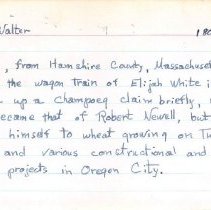 Walter 180
, from Hamshire County, Massachuset
the wagon train of Elijah White i
up a Champoeg claim briefly,
ecame that of Robert Newell, but
himself to wheat growing on Tu
and various constructional and
projects in Oregon City.